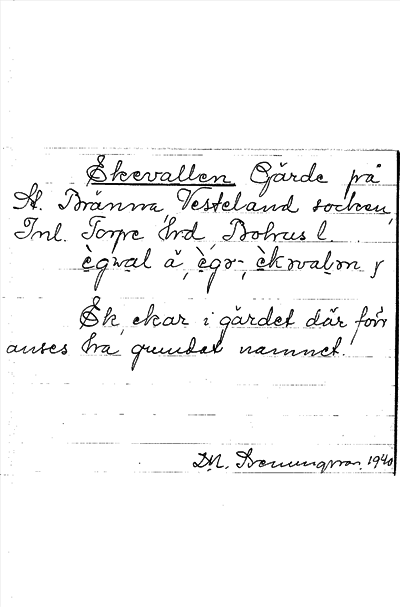 Ekevallen Gärde på
St. Bränna, Vesteland socken,
Inl. Torpe hrd Bohus l.
ègwal ä, ègə-, èkəvalən y
Ek, ekar i gärdet där förr
anses ha grundat namnet.
1940